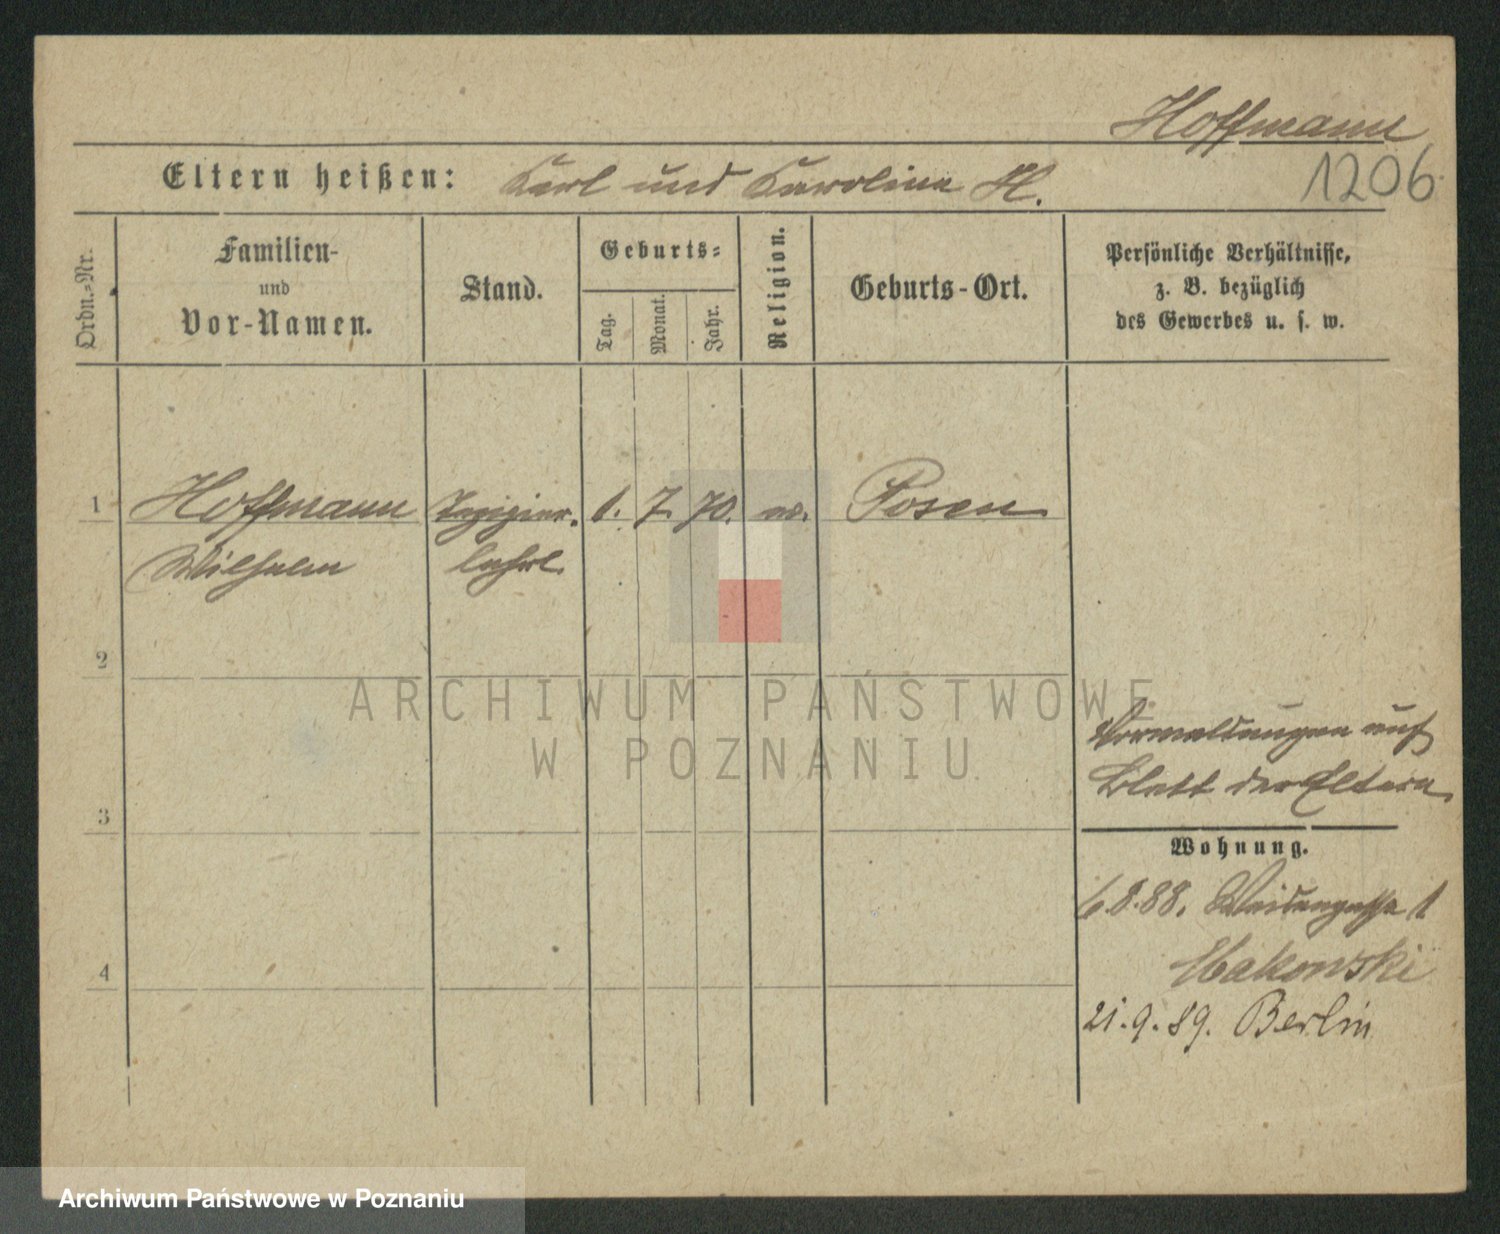 Hoffmann
1206
Eltern heißen: Karl und Karoline H.
Ordn.-Nr.
Familien-
und
Vor-Namen.
Stand.
Geburts-
Tag.
Monat.
Jahr.
Religion.
Geburts-Ort.
Persönliche Verhältnisse,
z. B. bezüglich
des Gewerbes u. s. w.
1 Hoffmann Tapezier. 1. 7. 70. ev. Posen
Wilhelm lehrl.
2
ARCHIWUM PAŃSTWOWE
W POZNANIU
Vormeldungen auf
Blatt der Eltern
3
Wohnung.
6.8.88. Weidengasse 1
Makowski
4
21.9.89. Berlin
Archiwum Państwowe w Poznaniu